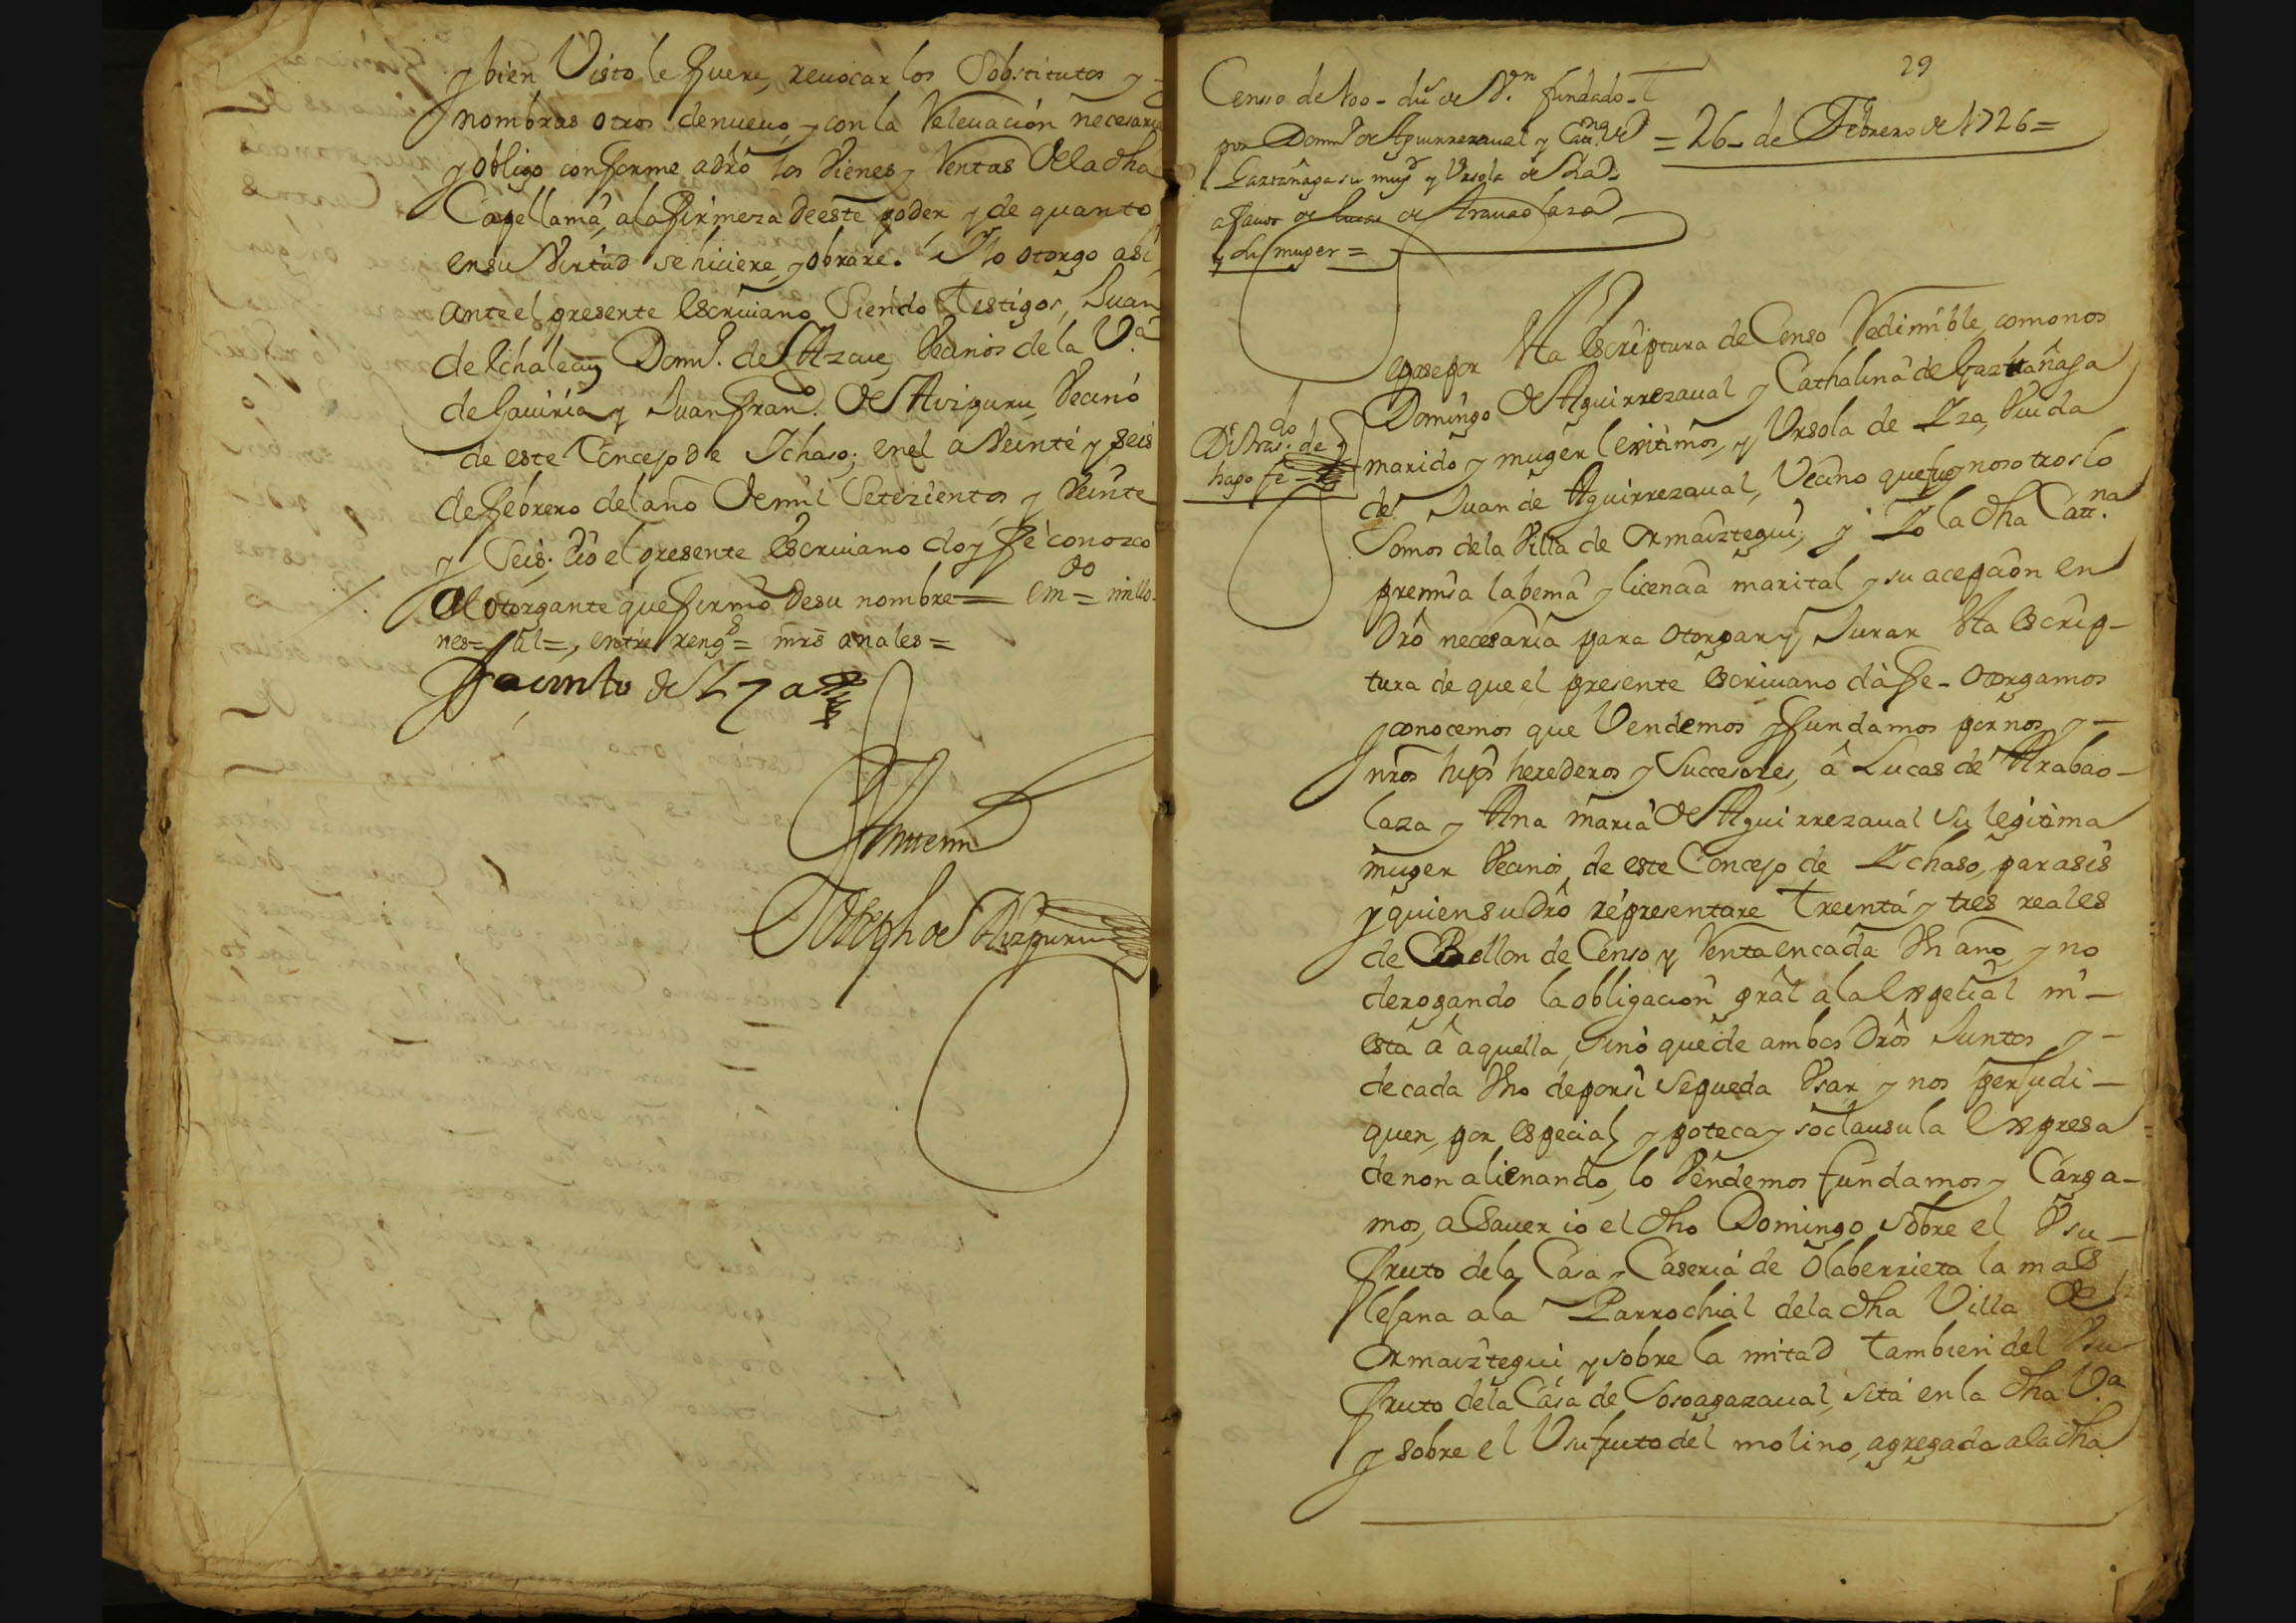 y bien Visto le fuere, reuocar los Sobstitutos y
nombras otros denueuo, y con la Releuación necesaria
y obligo conforme adrô los Vienes y Rentas dela dha
Capellania, ala firmeza de este poder, y de quanto
ensu Virtud se hiciere, y obrare. Y lo otorgo asi
ante el presente Escriuano Siendo testigos, Juan
de Echaleqų Domº. de Azcue Vecinos de la Vª
de Gauiria y Juan franº. de Aizpuru, Vecino
de este Concejo de Ichaso; en el a Veinte y seis
de febrero del año de mil Setezientos y Veinte
y Seis; Eio el presente Escriuano doy fe conozco
Al otorgante que firmó de su nombre = emdo = millo-
nes = tal =, entre rengs = mrs anales =
Jacinto de Yza
Antemi
Joseph de Aizpuru
29
Censo de 100 - dus de Vn fundado -
por Domº de Aguirrezaual y Catna de
Gaztañaga su mugr y Ursola de Yza
a fauor de Lucas de Arauaolaza
y su muger =
= 26 - de Febrero de 1726 =
Sepase por Sta Escriptura de Censo Redimible, como nos
Domingo de Aguirrezaual y Cathalina de Gaztañaga
marido y muger lexitimos, y Ursola de Yza, Viuda
Di trasdo. de
hago fe -
de Juan de Aguirrezaual, Vecino que fue y nosotros lo
Somos dela Villa de Ormaiztegui; y Yo la dha Catna
premisa la benia y licencia marital y su acepcion en
drô necesaria para otorgar y Jurar Sta escrip-
tura de que el presente Escriuano dà fe - otorgamos
y conocemos que Vendemos y fundamos por nos y -
nros hijos herederos y Sucesores, â Lucas de Arabao-
laza y Ana maria de Aguirrezaual su legitima
muger Vecinos de este Concejo de Ychaso, para sis
y quien su drô representare treinta y tres reales
de Bellon de Censo y Renta en cada Vn año, y no
derogando la obligacion gral ala Expecial ni -
esta â aquella, Sino que de ambos drôs Juntos y -
de cada Vno de por si se pueda Vsar y nos perjudi -
quen, por especial y poteca y so clausula Expresa
de non alienando, lo Vendemos fundamos y Carga-
mos, a Sauer io el dho Domingo sobre el Vsu -
fruto dela Casa y Caseria de Olaberrieta la mas
lejana ala Parrochial dela dha Villa de
Ormaiztegui y sobre la mitad tambien del Vsu
fruto dela Casa de Sosoagazaual, sita en la dha Vª
y sobre el Usufruto del molino, agregada ala dha